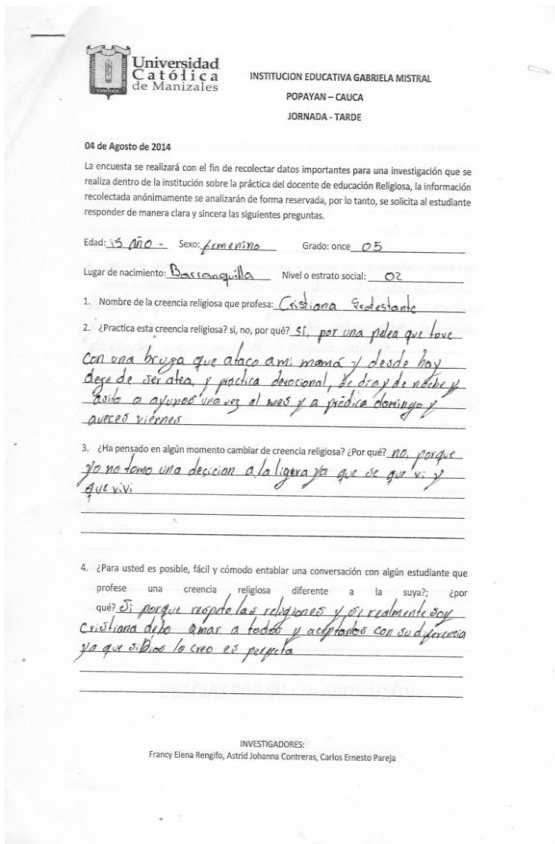 Universidad
Católica
de Manizales
INSTITUCION EDUCATIVA GABRIELA MISTRAL
POPAYAN – CAUCA
JORNADA - TARDE
04 de Agosto de 2014
La encuesta se realizará con el fin de recolectar datos importantes para una investigación que se
realiza dentro de la institución sobre la práctica del docente de educación Religiosa, la información
recolectada anónimamente se analizarán de forma reservada, por lo tanto, se solicita al estudiante
responder de manera clara y sincera las siguientes preguntas.
Edad: 15 año - Sexo: femenino Grado: once 05
Lugar de nacimiento: Barranquilla Nivel o estrato social: 02
1. Nombre de la creencia religiosa que profesa: Cristiana
2. ¿Practica esta creencia religiosa? si, no, por qué? si, por una pelea que tove
con una bruja que ataco a mi mamá y desde hay
deje de ser atea, y practica devocional, de dia y de noche y
asisto a ayunos una vez al mes y a prédica domingo y
aveces viernes
3. ¿Ha pensado en algún momento cambiar de creencia religiosa? ¿Por qué? no, porque
yo no tomo una decicion a la ligera ya que se que vi y
que viví
4. ¿Para usted es posible, fácil y cómodo entablar una conversación con algún estudiante que
profese una creencia religiosa diferente a la suya?; ¿por
qué? Si porque respeto las religiones y si realmente soy
Cristiana debo amar a todos y aceptarlos con su diferencia
ya que si Dios lo creo es perfecta
INVESTIGADORES:
Francy Elena Rengifo, Astrid Johanna Contreras, Carlos Ernesto Pareja